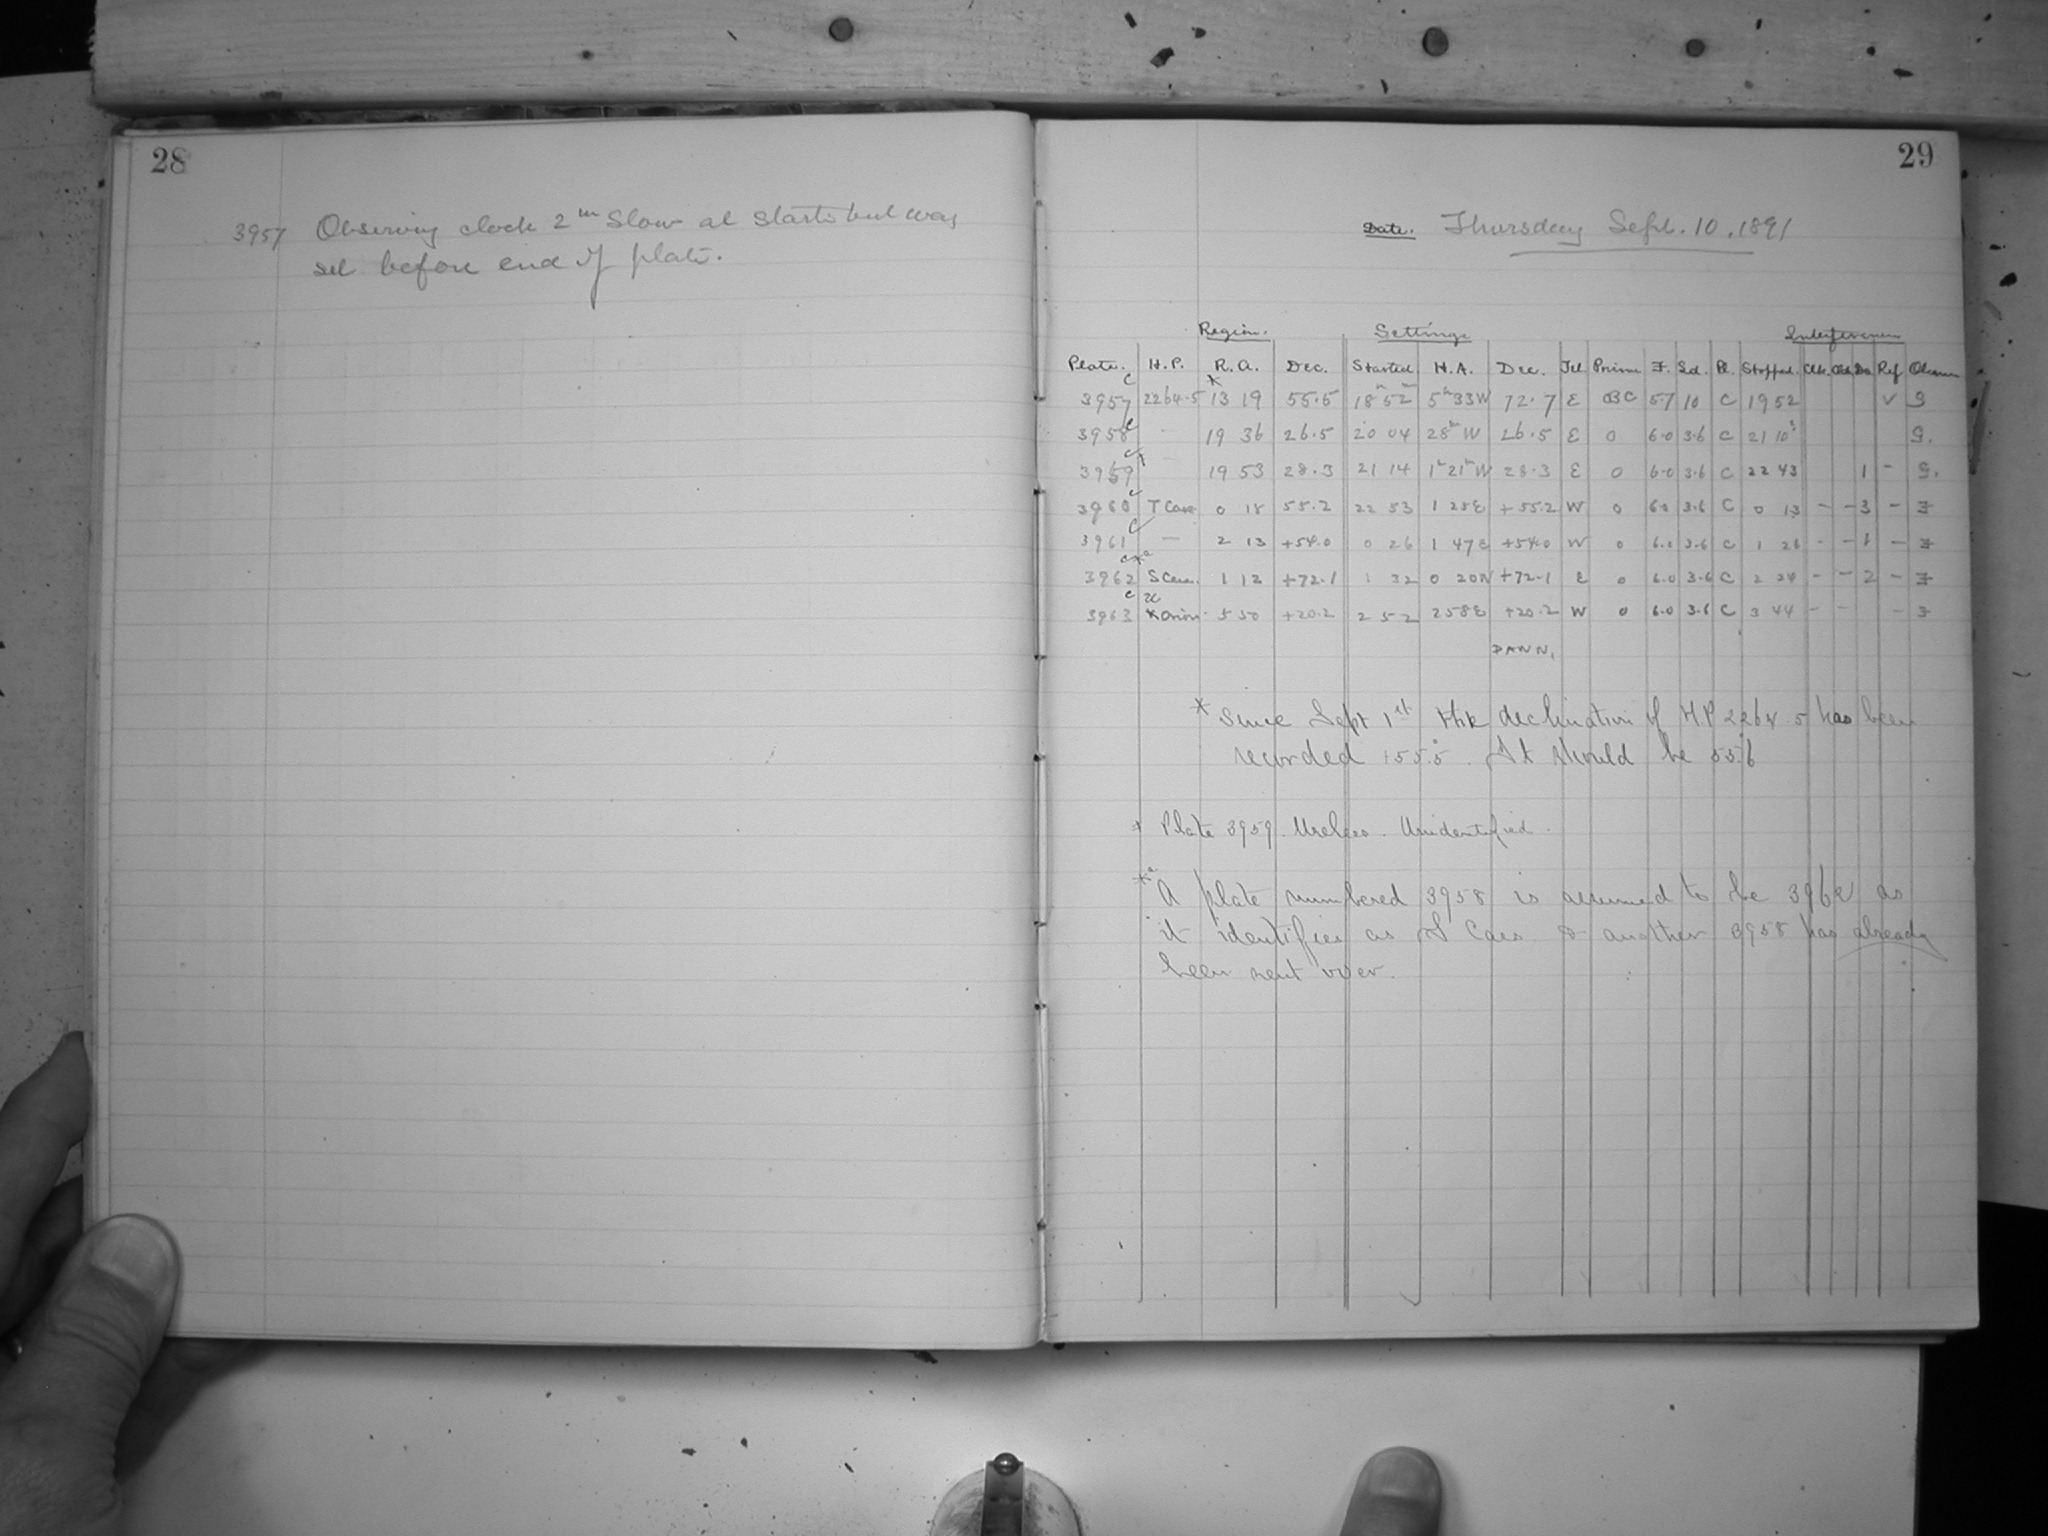 28
3957 Observing clock 2m slow at start but was
set before end of plate.
29
Date. Thursday Sept. 10, 1891
Region. Settings Interference
Plate. H.P. R.A. Dec. Started H.A. Dec. Tel Prism F. Sd. Pl. Stopped Da Ref
3957 c 2264.5 * 13 19 55.5 18h 52m 5h 33W 72.7 E BC 5.7 10 C 19 52 ✓ S
3958 c - 19 36 26.5 20 04 28m W 26.5 E 0 6.0 3.6 C 21 10 S.
3959 c * - 19 53 28.3 21 14 1h 21m W 28.3 E 0 6.0 3.6 C 22 43 1 - S.
3960 c T Cass 0 18 55.2 22 53 1 25E +55.2 W 0 6.0 3.6 C 0 13 - - 3 - F
3961 c - 2 13 +54.0 0 26 1 47E +54.0 W 0 6.0 3.6 C 1 26 - - 1 - F
3962 c *a S Cass. 1 12 +72.1 1 32 0 20W +72.1 E 0 6.0 3.6 C 2 24 - - 2 - F
3963 c Orion 5 50 +20.2 2 52 2 58E +20.2 W 0 6.0 3.6 C 3 44 - - F
DAWN,
* Since Sept 1st the declination of H.P 2264.5 has been
recorded +55.5. It should be 55.6
* Plate 3959. Useless. Unidentified.
*a A plate numbered 3958 is assumed to be 3962 as
it identifies as S Cass & another 3958 has already
been sent over.